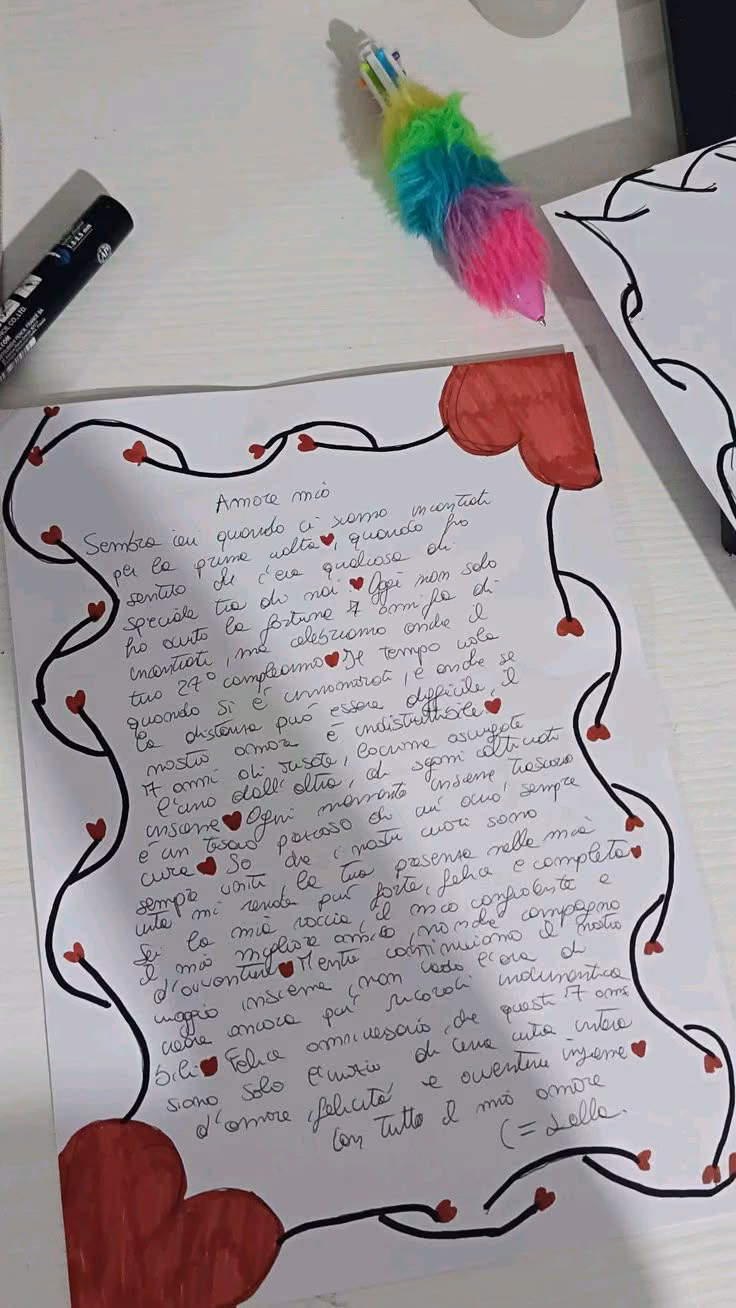 Amore mio
Sembra ieri quando ci siamo incontrati
per la prima volta♥, quando ho
sentito che c'era qualcosa di
speciale tra di noi ♥ Oggi non solo
ho avuto la fortuna 7 anni fa di
incontrati, ma celebriamo anche il
tuo 27° compleanno♥ Il tempo vola
quando si è innamorati, e anche se
la distanza può essere difficile, il
nostro amore è indistruttibile♥
7 anni di risate, lacrime asciugate
l'uno dall'altra, di sogni coltivati
insieme♥ Ogni momento insieme trascorso
è un tesoro prezioso di cui avrò sempre
cura♥ So che i nostri cuori sono
sempre uniti e la tua presenza nella mia
vita mi rende più forte, felice e completa♥
Sei la mia roccia, il mio confidente e
il mio migliore amico, nonché compagno
d'avventure♥ Mentre continuiamo il nostro
viaggio insieme, non vedo l'ora di
creare ancora più ricordi indimentica
bili♥ Felice anniversario, che questi 7 anni
siano solo l'inizio di una vita intera
d'amore, felicità e avventure insieme♥
Con tutto il mio amore
(= Lella.